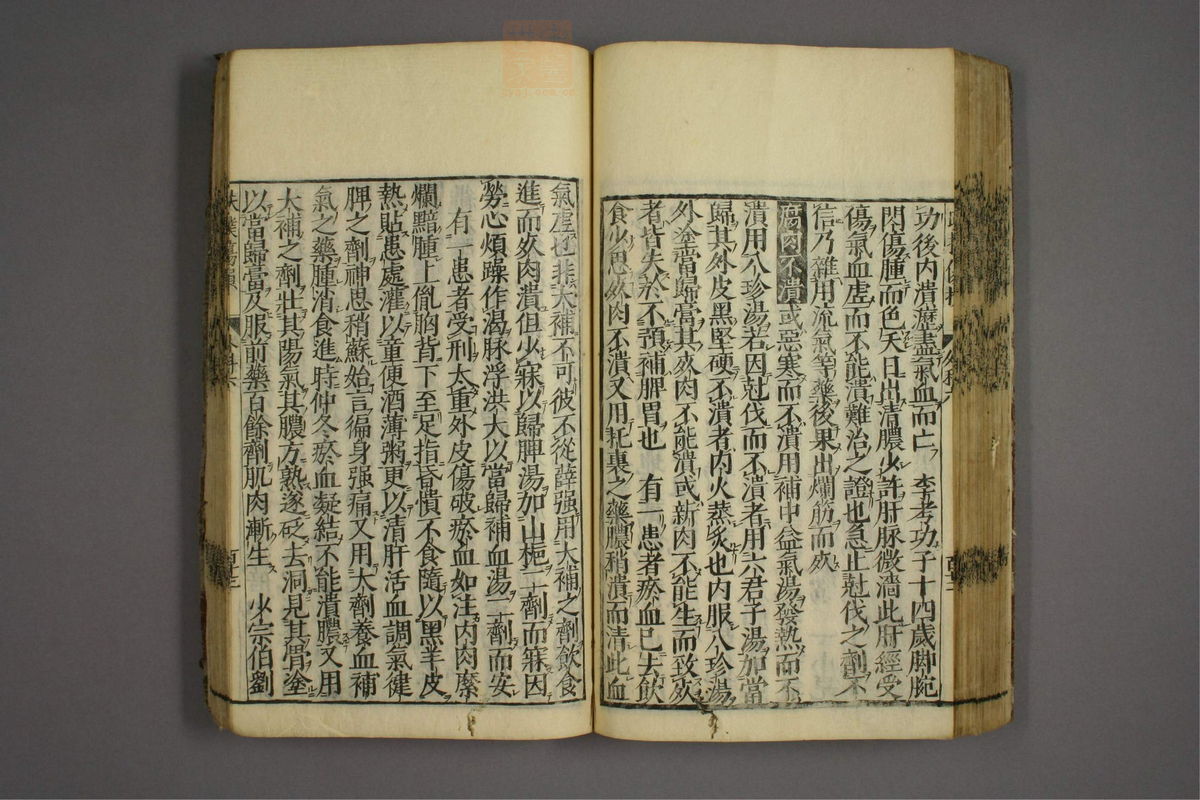 功後内潰瀝盡氣血而亡　李考功子十四歳脚腕
閃傷腫而色夭日出清膿少許肝脉微濇此肝經受
傷氣血虚而不能潰難治之證也急止尅伐之劑不
信乃雜用流氣等藥後果出爛筋而㱙
腐肉不潰或惡寒而不潰用補中益氣湯發熱而不
潰用八珍湯若因尅伐而不潰者用六君子湯加當
歸其外皮黒堅硬不潰者内火蒸炙也内服八珍湯
外塗當歸膏其㱙肉不能潰或新肉不能生而致㱙
者皆失於不預補脾胃也　有一患者瘀血已去飲
食少思㱙肉不潰又用托裏之藥膿稍潰而清此血
氣虚也非大補不可彼不從薛强用大補之劑飲食
進而㱙肉潰但少寐以歸脾湯加山梔二劑而寐因
勞心煩躁作渇脉浮洪大以當歸補血湯二劑而安
有一患者受刑太重外皮傷破瘀血如注内肉糜
爛黯腫上胤胸背下至足指昏憒不食隨以黒羊皮
熱貼患處灌以童便酒薄粥更以清肝活血調氣健
脾之劑神思稍蘇始言徧身强痛又用大劑養血補
氣之藥腫消食進時仲冬瘀血凝結不能潰膿又用
大補之劑壯其陽氣其膿方熟遂砭去洞見其骨塗
以當歸膏及服前藥百餘劑肌肉漸生　少宗伯劉